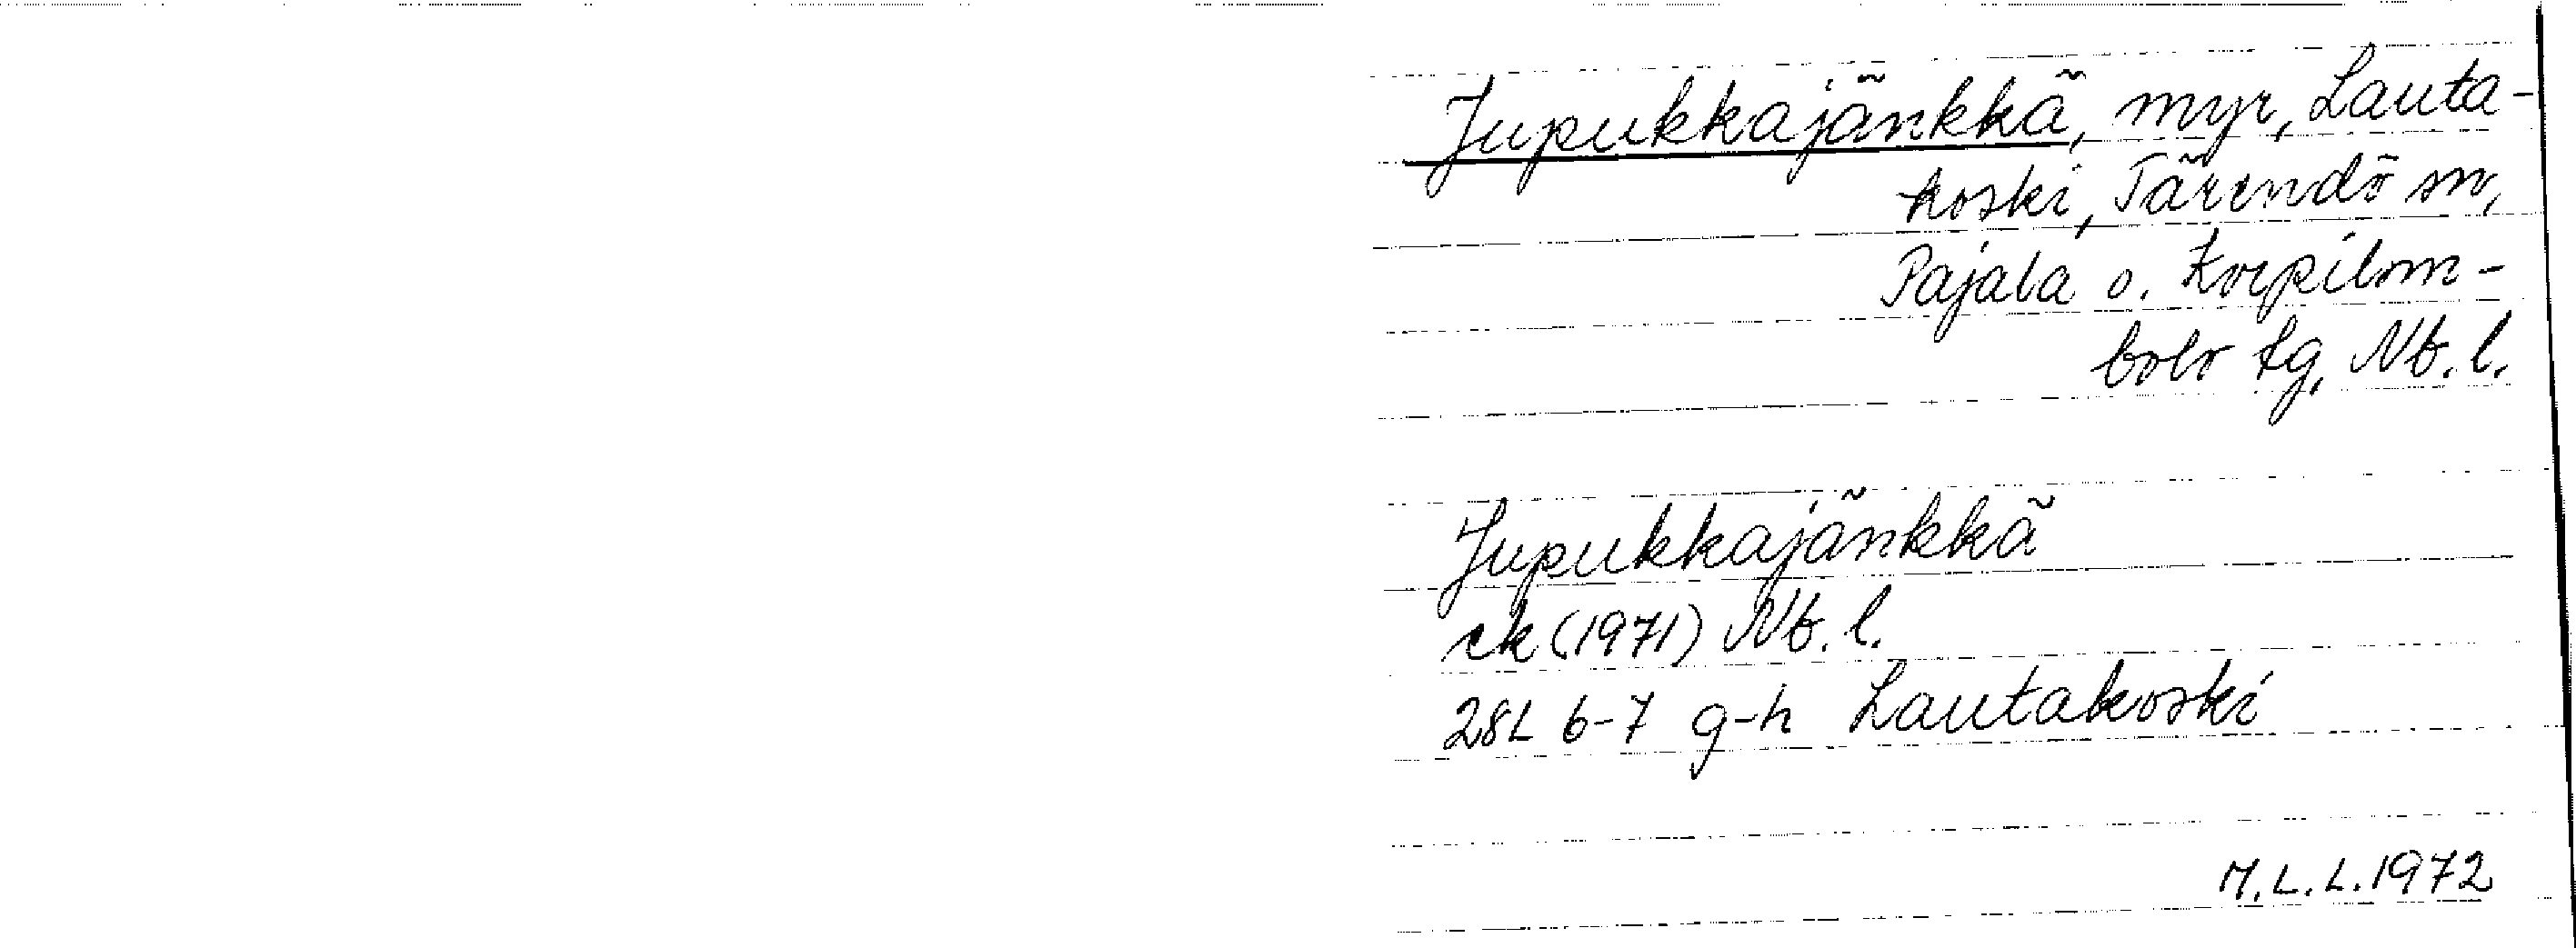 Jupukkajänkkä, myr, Lauta-
koski, Tärendö sn,
Pajala o. Korpilom-
bolo tg, Nb. l.
Jupukkajänkkä
ek (1971) Nb. l.
28L 6-7 g-h Lautakoski
M.L.L. 1972